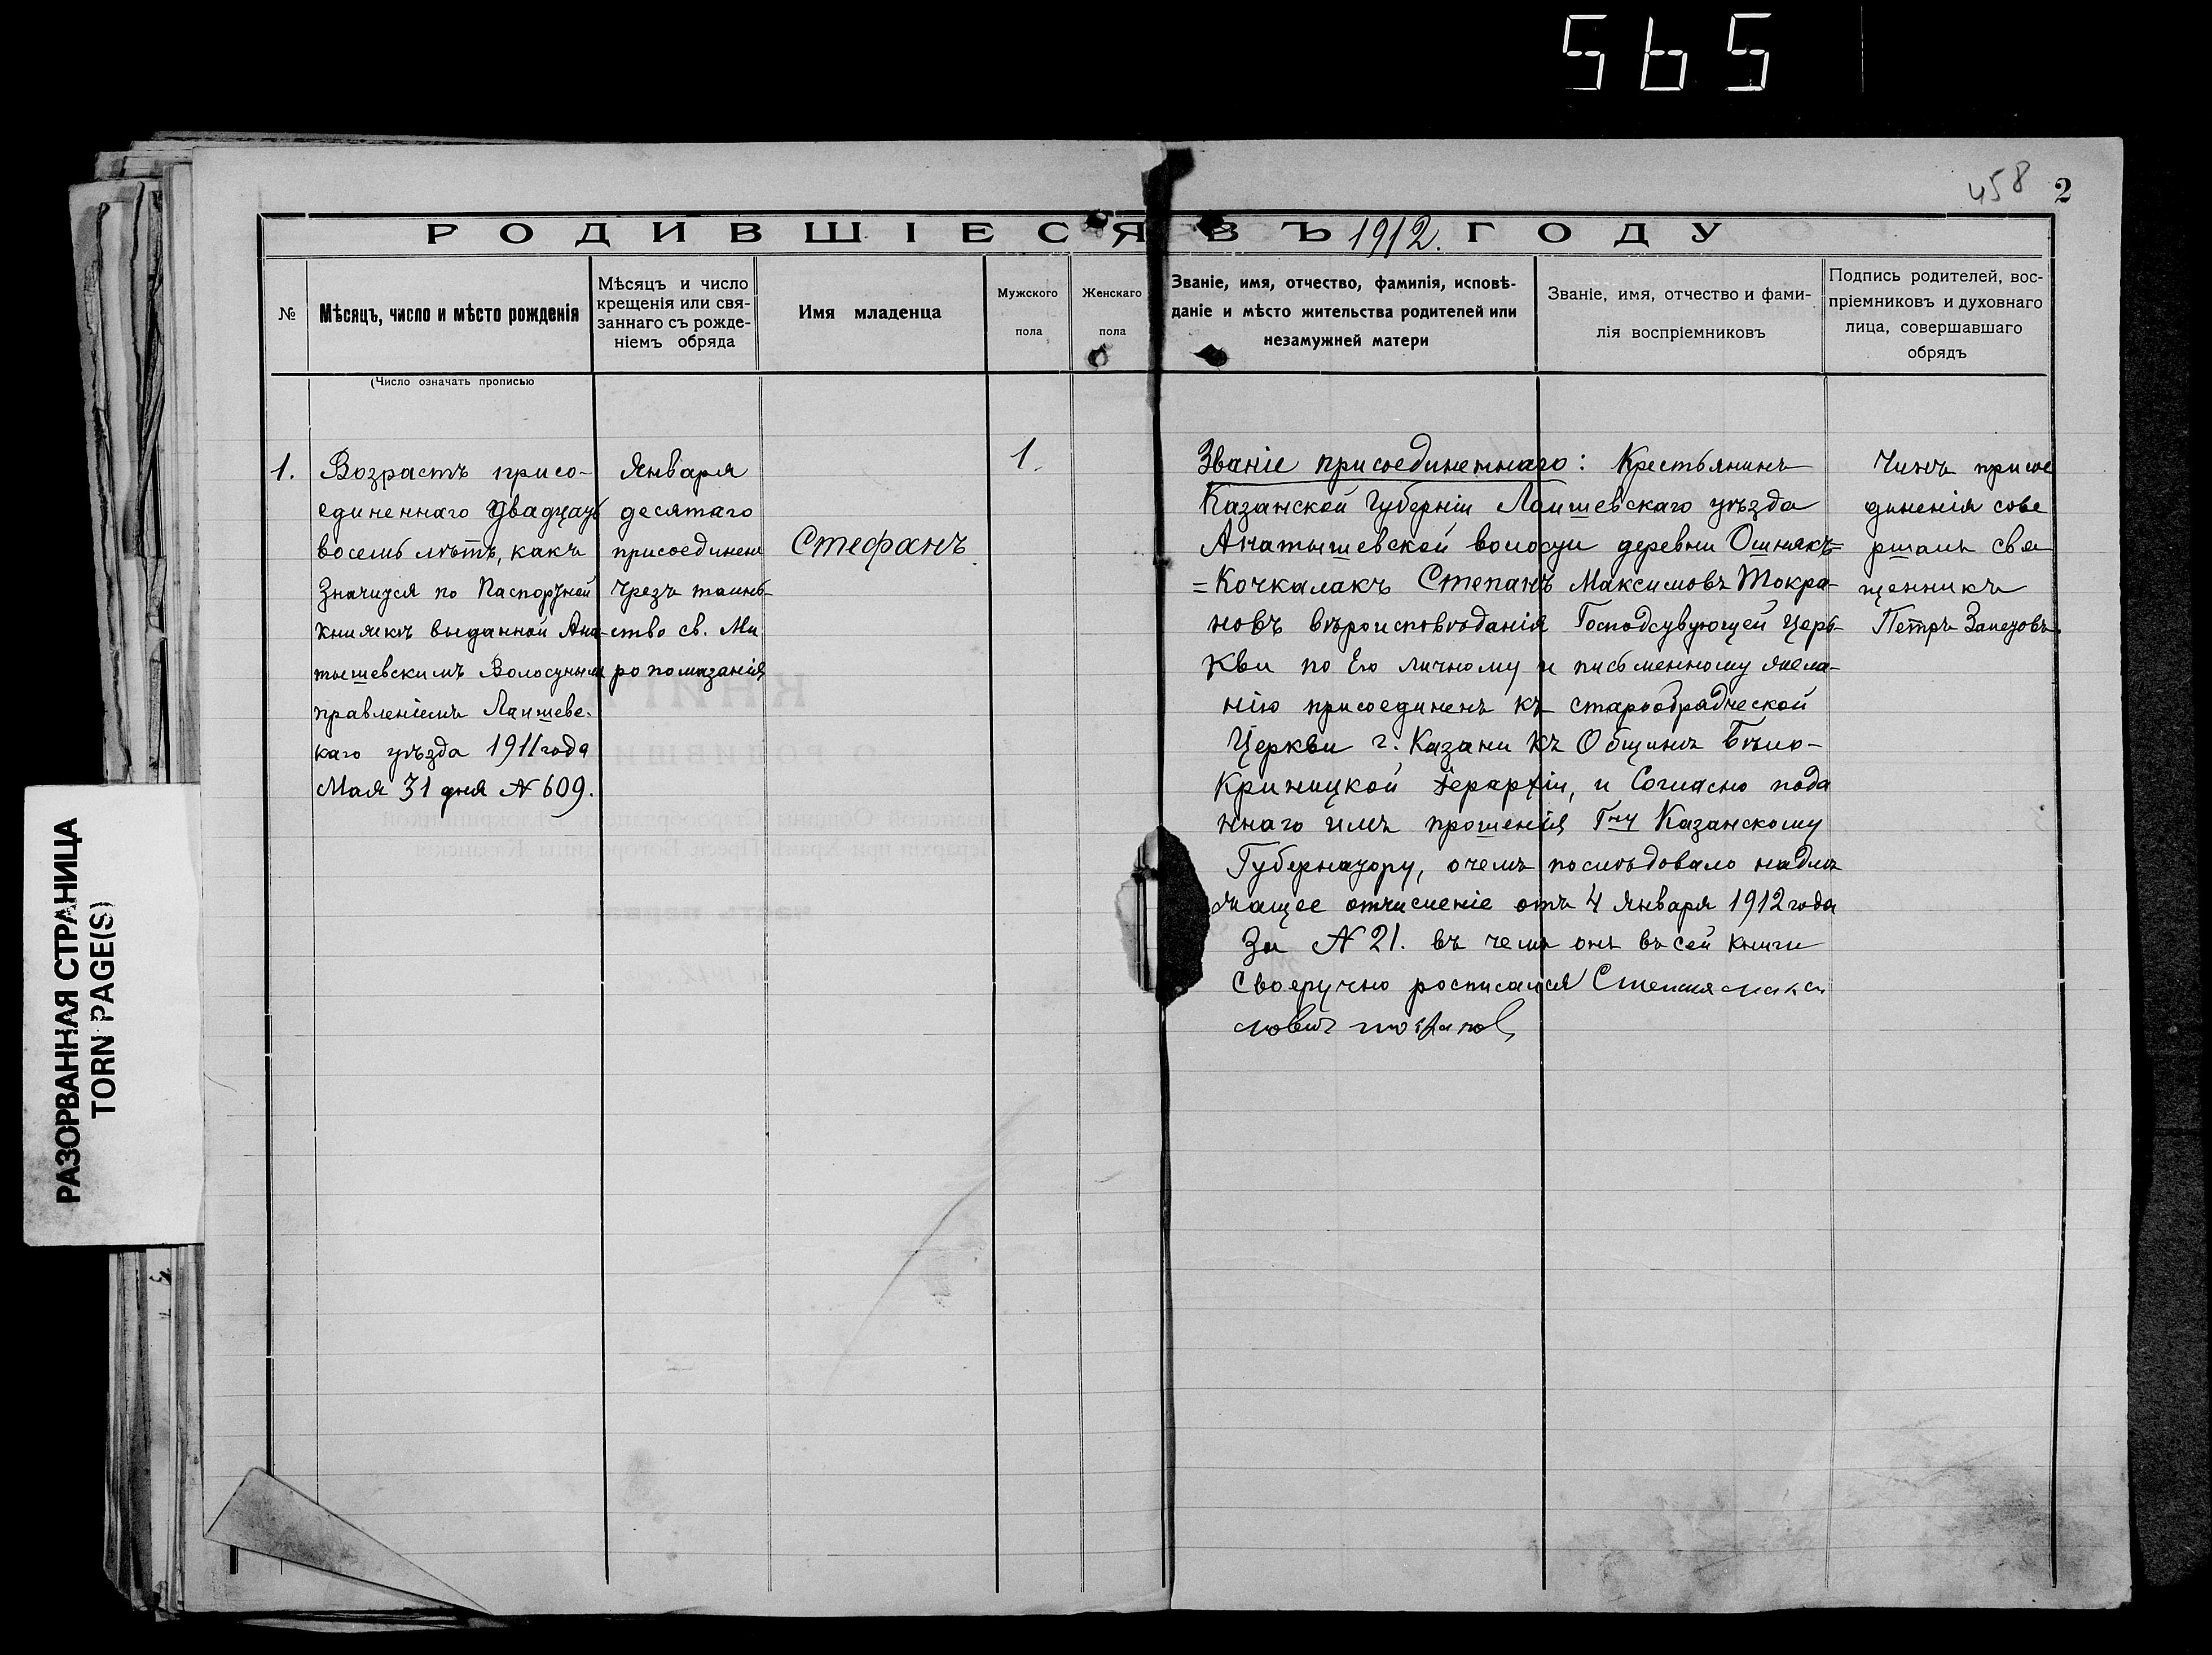 565
458 2
РОДИВШІЕСЯ ВЪ 1912. ГОДУ
№
Мѣсяцъ, число и мѣсто рожденія
(Число означать прописью
Мѣсяцъ и число
крещенія или свя-
заннаго съ рожде-
ніемъ обряда
Имя младенца
Мужского
пола
Женскаго
пола
Званіе, имя, отчество, фамилія, исповѣ-
даніе и мѣсто жительства родителей или
незамужней матери
Званіе, имя, отчество и фами-
лія воспріемниковъ
Подпись родителей, вос-
пріемниковъ и духовнаго
лица, совершавшаго
обрядъ
1.
Возрастъ присо-
единеннаго двадцать
восемь лѣтъ, какъ
значится по Паспортной
книжкѣ выданной Ана-
тышевскимъ Волостнымъ
правленіемъ Лаишевс-
каго уѣзда 1911 года
Мая 31 дня № 609.
Января
десятаго
присоединенъ
чрезъ таинь-
ство св. Ми
ропомазанія
Стефанъ
1.
Званіе присоединеннаго: Крестьянинъ
Казанской Губерніи Лаишевскаго уѣзда
Анатышевской волости деревни Ошнякъ=
=Кочкалакъ Степанъ Максимовъ Токра-
новъ вѣроисповѣданія Господствующей Церь-
кви по Его личному и письменному жела-
нію присоединенъ къ старообрядческой
Церкви г. Казани къ Общинѣ Бѣло-
Криницкой Іерархіи, и Согласно пода
ннаго имъ прошенія Гну Казанскому
Губернатору, о чемъ послѣдовало надле
жащее отчисленіе отъ 4 Января 1912 года
За № 21. въ чемъ онъ въ сей книги
Своеручно росписался Степан макси
мовичъ
Чинъ присое
диненія сове
ршалъ свя
щенникъ
Петръ Залетовъ.
РАЗОРВАННАЯ СТРАНИЦА
TORN PAGE(S)